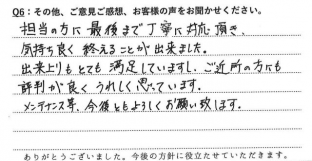 Q6：その他、ご意見ご感想、お客様の声をお聞かせください。
担当の方に最後まで丁寧に対応頂き、
気持ち良く終えることが出来ました。
出来上りもとても満足していますし、ご近所の方にも
評判が良くうれしく思っています。
メンテナンス等、今後ともよろしくお願い致します。
ありがとうございました。今後の方針に役立たせていただきます。